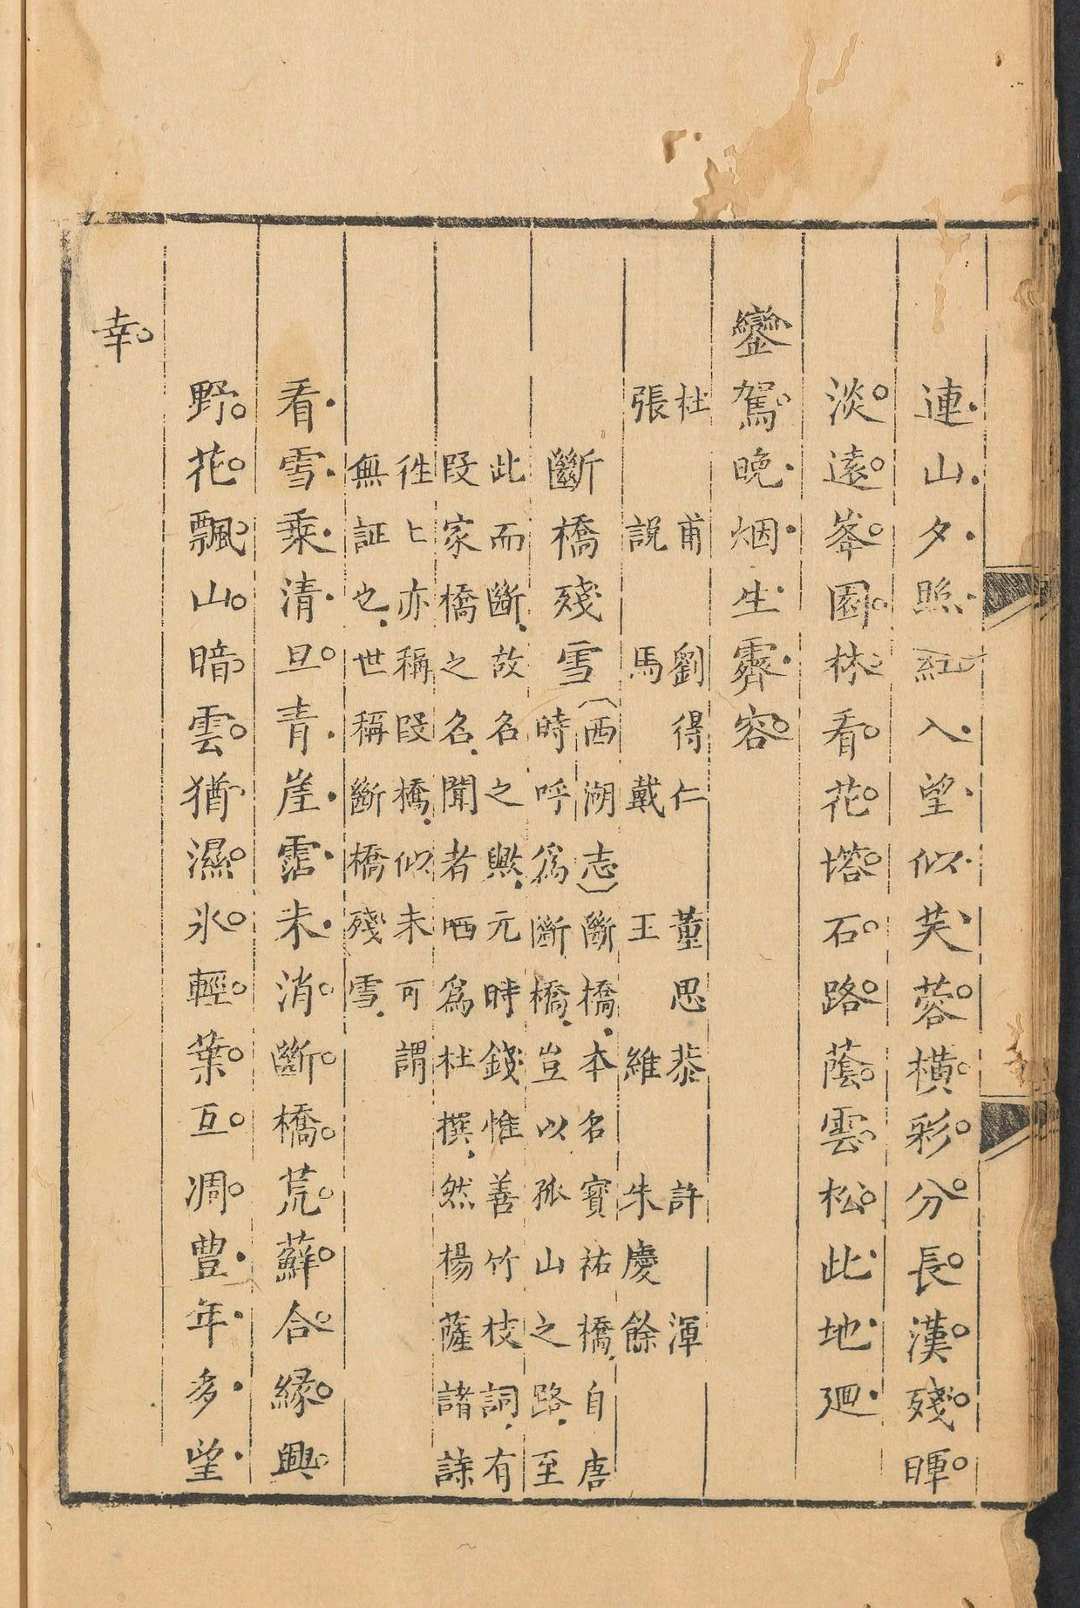 連山夕照紅入望似芙蓉橫彩分長漢殘暉
淡遠峯園林看花塔石路蔭雲松此地廻
鑾駕晚烟生霽容
杜甫 劉得仁 董思恭 許渾
張說 馬戴 王維 朱慶餘
斷橋殘雪
(西湖志)斷橋本名寳祐橋自唐
時呼爲斷橋豈以孤山之路至
此而斷故名之歟元時錢惟善竹枝詞有
叚家橋之名聞者哂爲杜撰然楊薩諸詠
徃〻亦稱叚橋似未可謂
無証也世稱斷橋殘雪
看雪乗清旦青崖霑未消斷橋荒蘚合緣興
野花飄山暗雲猶濕氷輕葉互凋豊年多望
幸